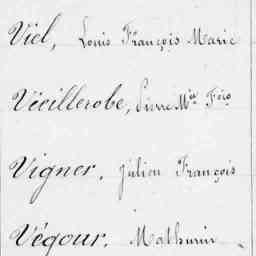 Viel, Louis François Marie
Vieillerobe, Pierre Mie Fçois
Vigner. Julien François
Végour. Mathurin